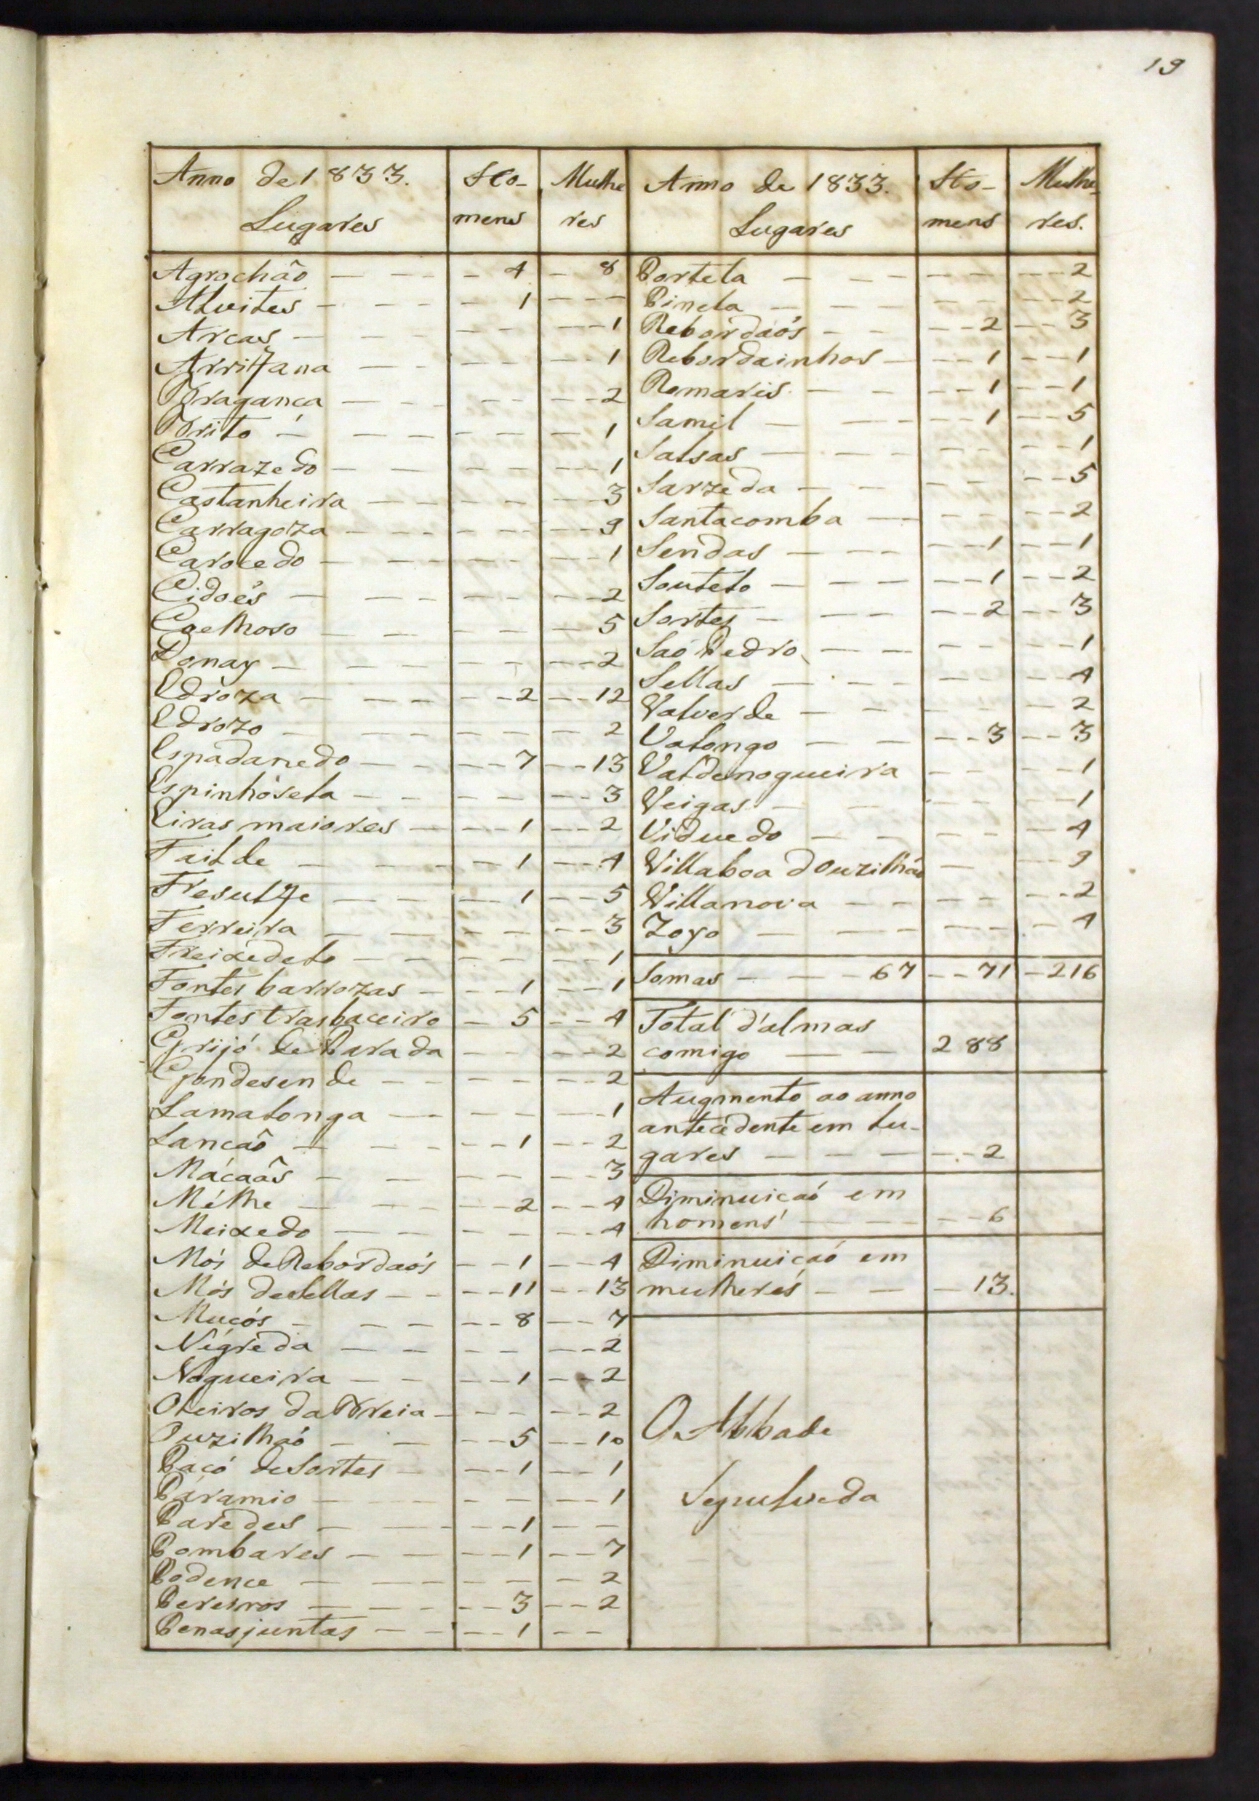 19
Anno de 1833. Ho- Mulhe
Lugares mens res
Agrochão 4 8
Alvites 1
Arcas 1
Arrifana 1
Bragança 2
Brito 1
Carrazedo 1
Castanheira 3
Carragoza 9
Carocedo 1
Cidoẽs 2
Coelhoso 5
Donay 2
Edroza 2 12
Edrozo 2
Espadanedo 7 13
Espinhósela 3
Eiras maiores 1 2
Failde 1 4
Fresulfe 1 5
Ferreira 3
Freixedelo 1
Fontes barrozas 1 1
Fontes trasbaceiro 5 4
Grijó de Parada 2
Gondesende 2
Lamalonga 1
Lanção 1 2
Mácaãs 3
Mélhe 2 4
Meixedo 4
Mós de Rebordaós 1 4
Mós de Sellas 11 13
Muçós 8 7
Négreda 2
Nogueira 1 2
Oteiros da Breia 2
Ouzilhaó 5 10
Paçó de Sortes 1 1
Páramio 1
Paredes 1
Pombares 1 7
Podence 2
Pereiros 3 2
Penasjuntas 1
Anno de 1833. Ho- Mulhe-
Lugares mens res.
Portela 2
Pinela 2
Rebordaós 2 3
Rebordainhos 1 1
Romaris 1 1
Samil 1 5
Salsas 1
Sarzeda 5
Santacomba 2
Sendas 1 1
Soutelo 1 2
Sortes 2 3
Saó Pedro 1
Sellas 4
Valverde 2
Valongo 3 3
Valdenogueira 1
Veigas 1
Viduedo 4
Villaboa d'Ouzilhaó 9
Villanova 2
Zoyo 4
Somas 67 71 216
Total d'almas
comigo 288
Augmento ao anno
antecedente em lu-
gares 2
Diminuiçaó em
homens 6
Diminuiçaó em
mulheres 13.
O Abbade
Sepulveda